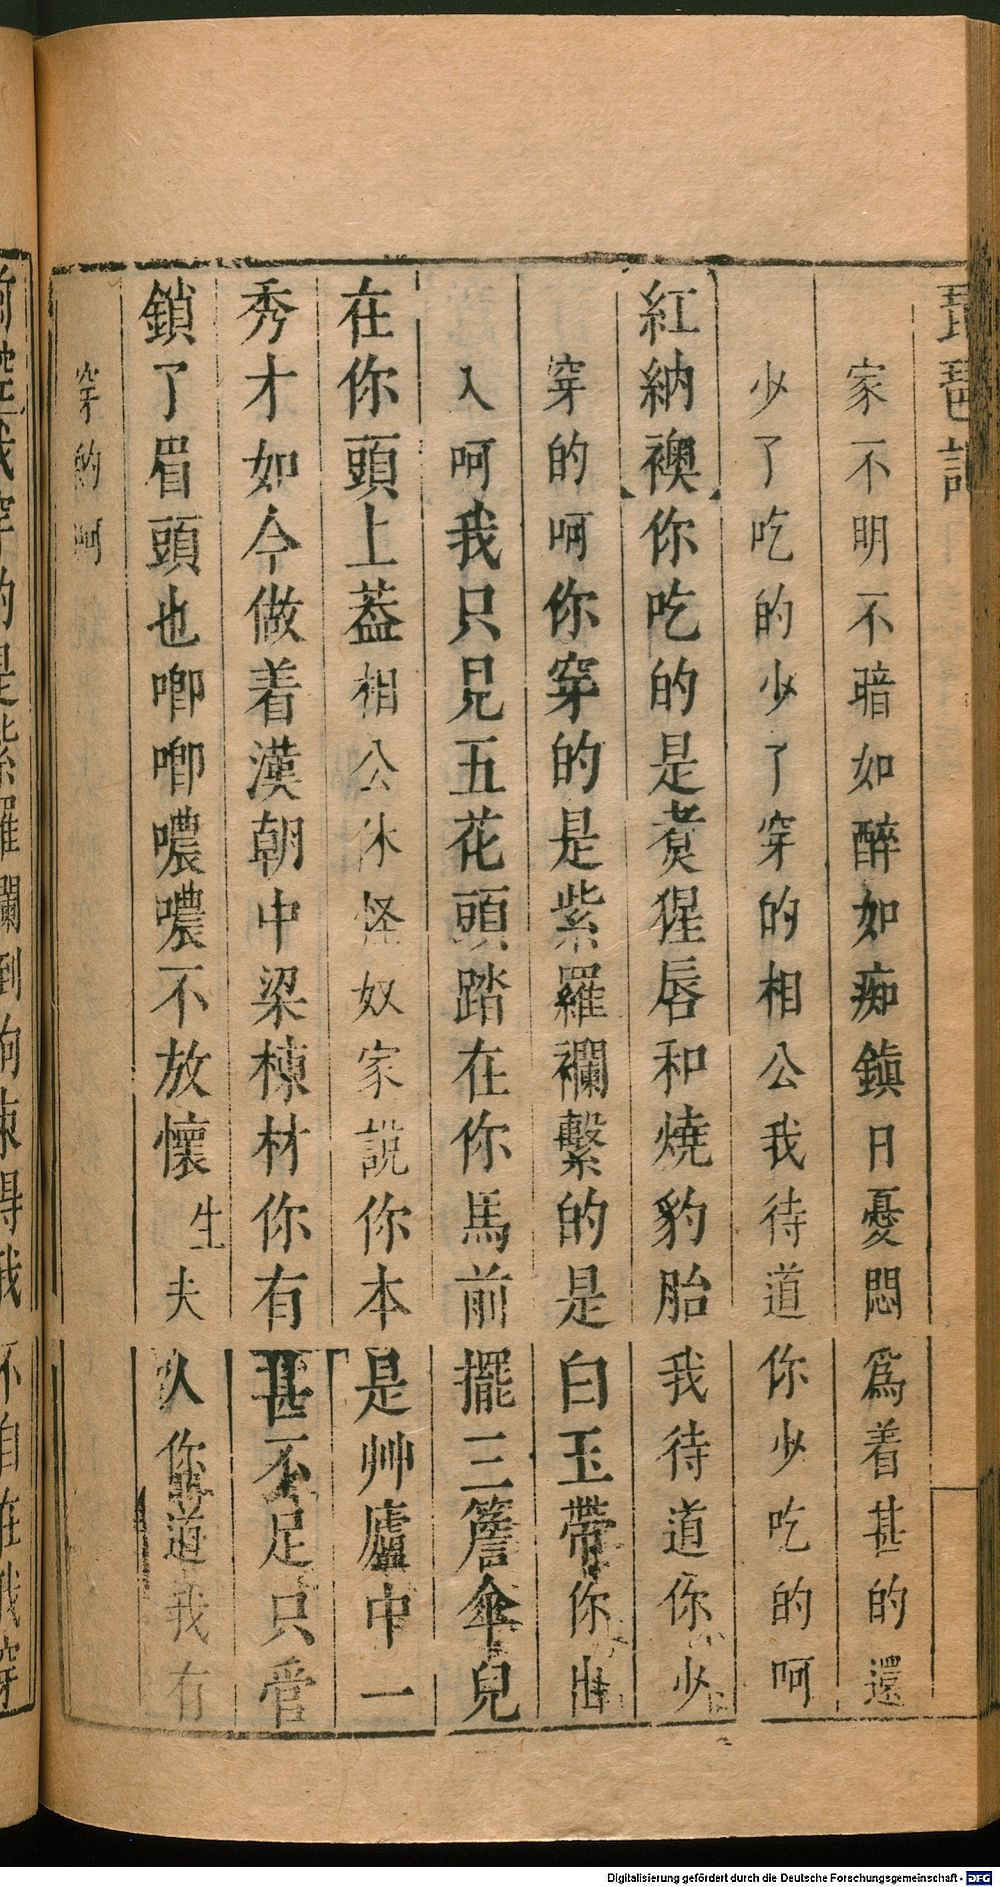 琵琶記
家不明不暗如醉如痴鎮日憂悶為着甚的還
少了吃的少了穿的相公我待道你少吃的呵
紅納襖你吃的是煑猩唇和燒豹胎我待道你少
穿的呵你穿的是紫羅襴繫的是白玉帶你出
入呵我只見五花頭踏在你馬前擺三簷傘兒
在你頭上葢相公休怪奴家說你本是艸廬中一
秀才如今做着漢朝中梁棟材你有甚不足只管
鎖了眉頭也唧唧噥噥不放懷生夫人你道我有
穿的呵
Digitalisierung gefördert durch die Deutsche Forschungsgemeinschaft - DFG